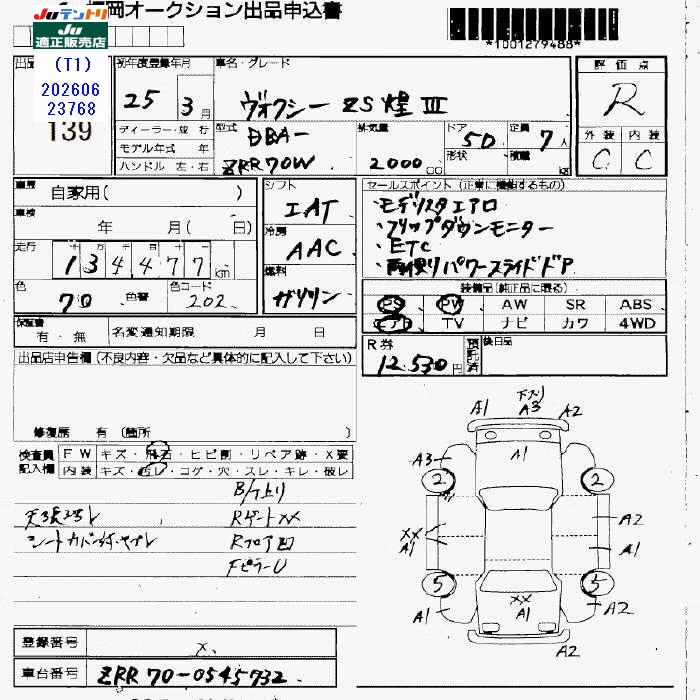 福岡オークション出品申込書
Juテントリ
Ju
適正販売店
*1001279488*
(T1)
202606
23768
139
出品
初年度登録年月
25 3月
車名・グレード
ヴォクシー ZS煌III
評価点
R
外装 内装
C C
ディーラー・並行
モデル年式 年
ハンドル 左・右
型式
DBA-
ZRR70W
排気量
2000 cc
ドア 5D
形状
定員 7人
積載 kg
車歴 自家用( )
車検 年 月( 日)
走行 134477 km
色 70 色替 色コード 202
シフト
IAT
冷房
AAC
燃料
ガソリン
セールスポイント (正常に機能するもの)
・モデリスタエアロ
・フリップダウンモニター
・ETC
・両側パワースライドドア
装備品(純正品に限る)
PS PW AW SR ABS
エアB TV ナビ カワ 4WD
保証書 有・無
名変通知期限 月 日
R券 12,530円
預託済
後日品
出品店申告欄 (不良内容・欠品など具体的に記入して下さい)
修復歴 有 (箇所 )
検査員記入欄
FW キズ・飛石・ヒビ割・リペア跡・X要
内装 キズ・汚レ・コゲ・穴・スレ・キレ・破レ
B/下より
天張汚レ Rゲートxx
シートカバー付・ヤブレ Rフロア凹
FピラーU
下より
A1 A3 A2
A1
A3
2 2
A2
XX
A1 A1
5 5
XX
A1 A1 A2
A2
登録番号 x
車台番号 ZRR70-0545732